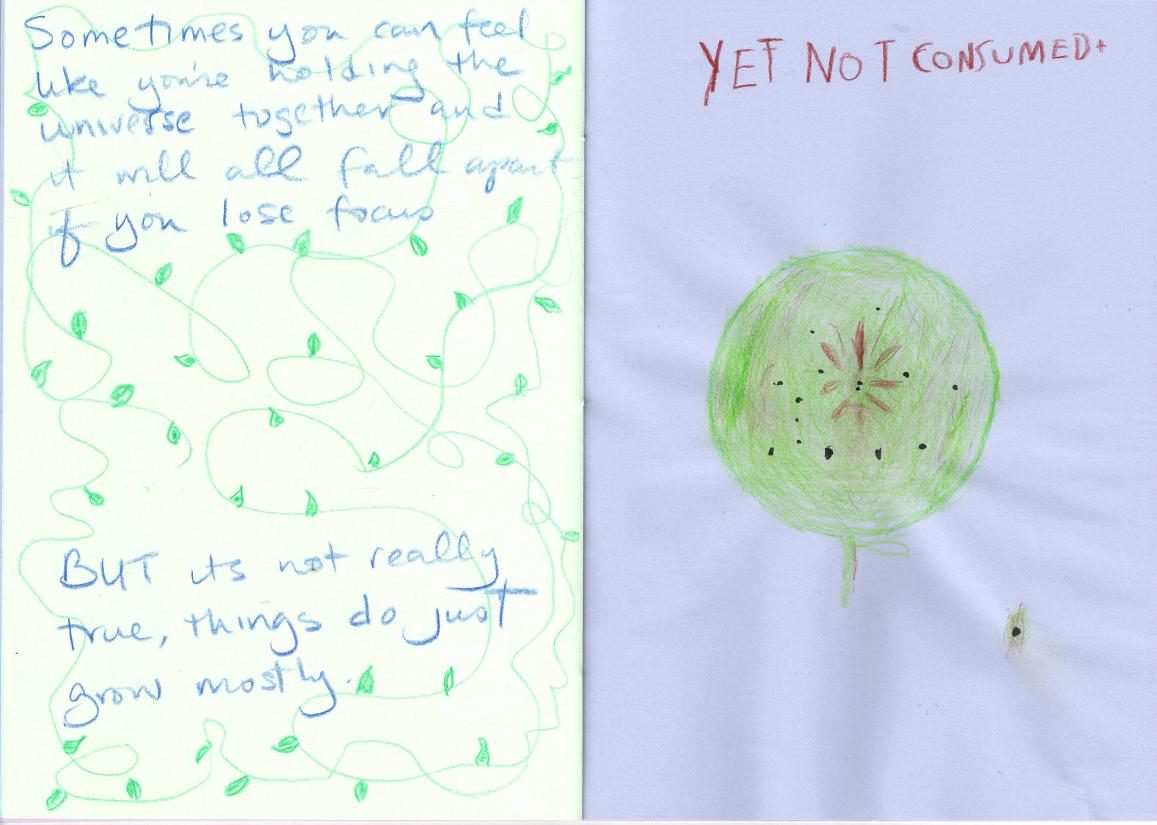 Sometimes you can feel
like you're holding the
universe together and
it will all fall apart
if you lose focus
BUT its not really
true, things do just
grow mostly.
YET NOT CONSUMED.